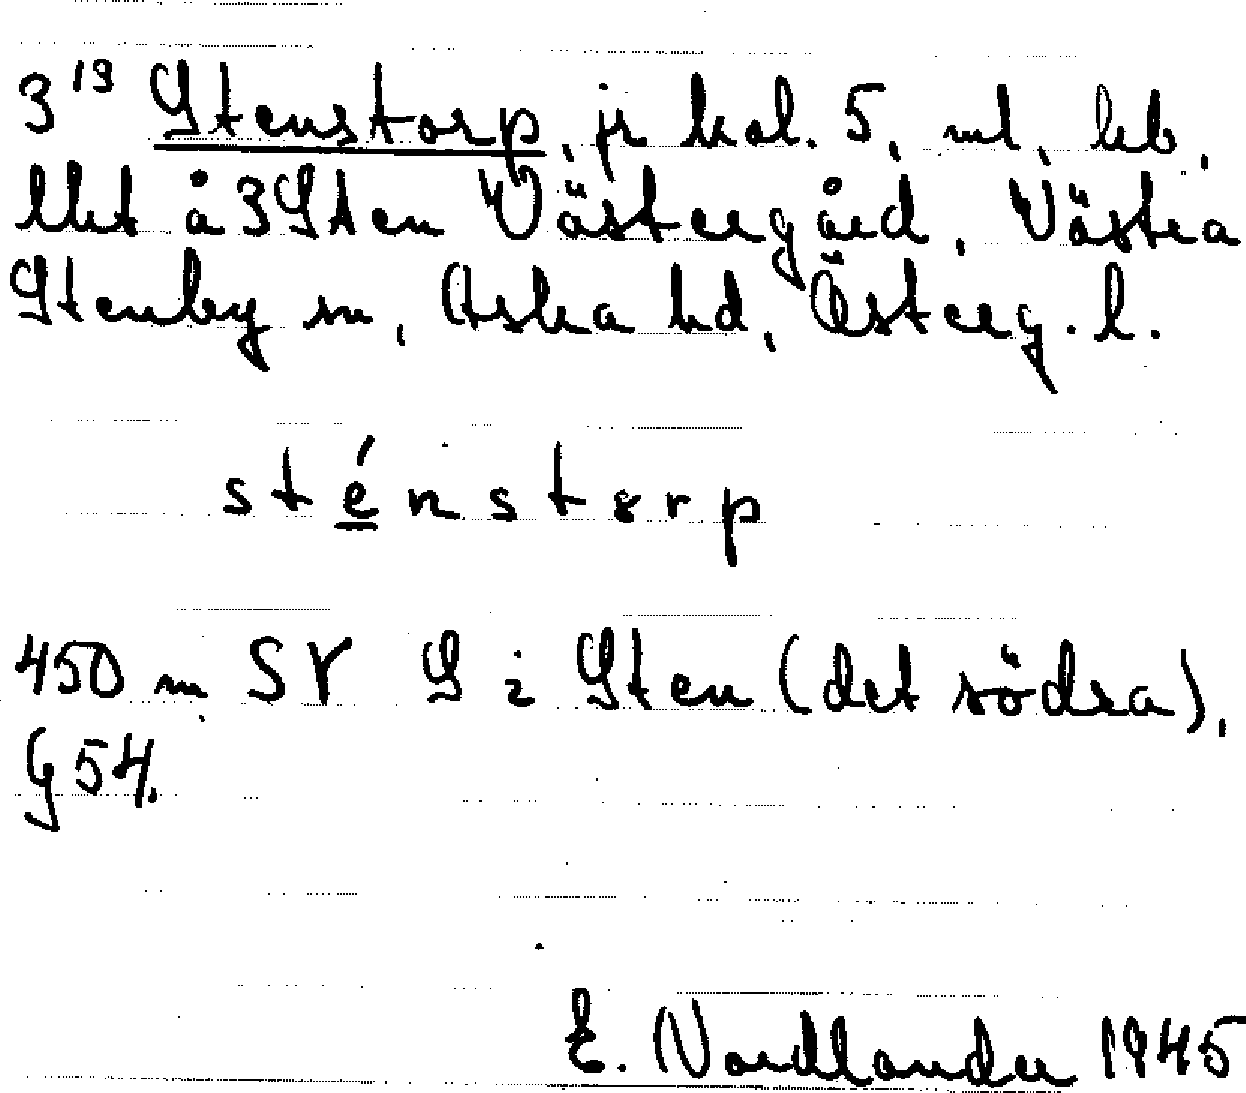 3¹⁹ Stenstorp, jr kol. 5, ml, kb,
lht å 3 Sten Västergård, Västra
Stenby sn, Aska hd, Österg. l.
sténstorp
450 m SV S i Sten (det södra),
G 54.
E. Nordlander 1945